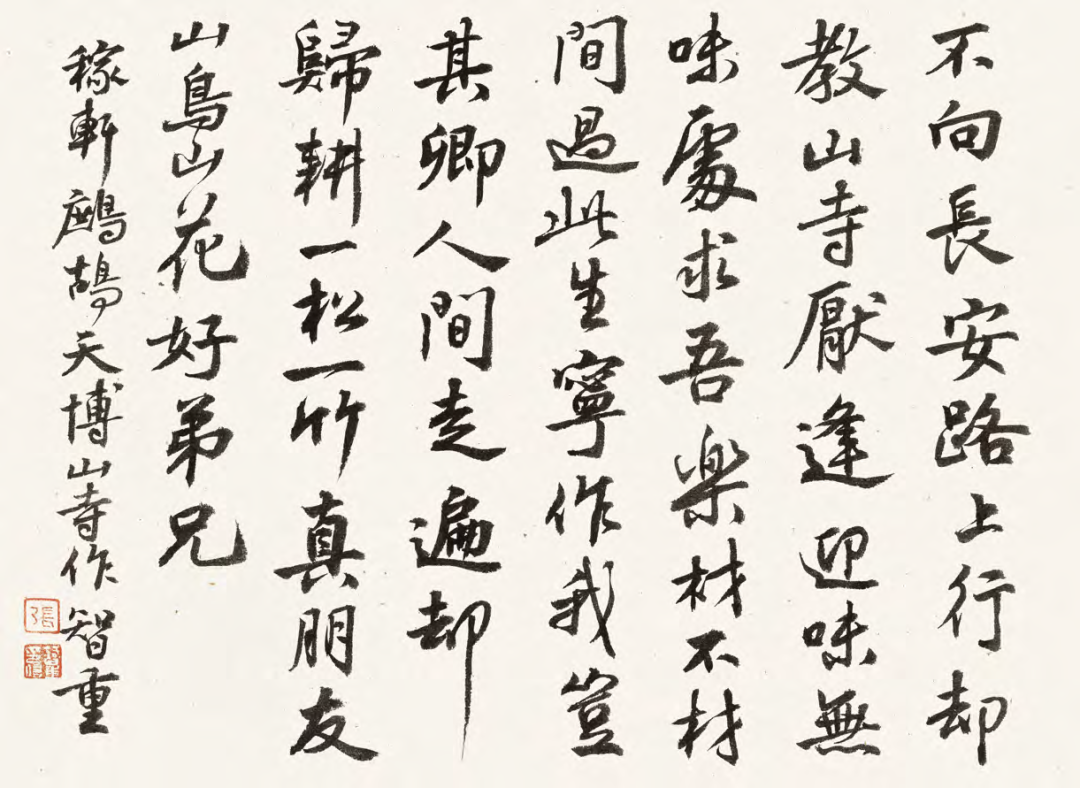 不向長安路上行却
教山寺厭逢迎味無
味處求吾樂材不材
間過此生寧作我豈
其卿人間走遍却
歸耕一松一竹真朋友
山鳥山花好弟兄
稼軒鷓鴣天博山寺作智重
張